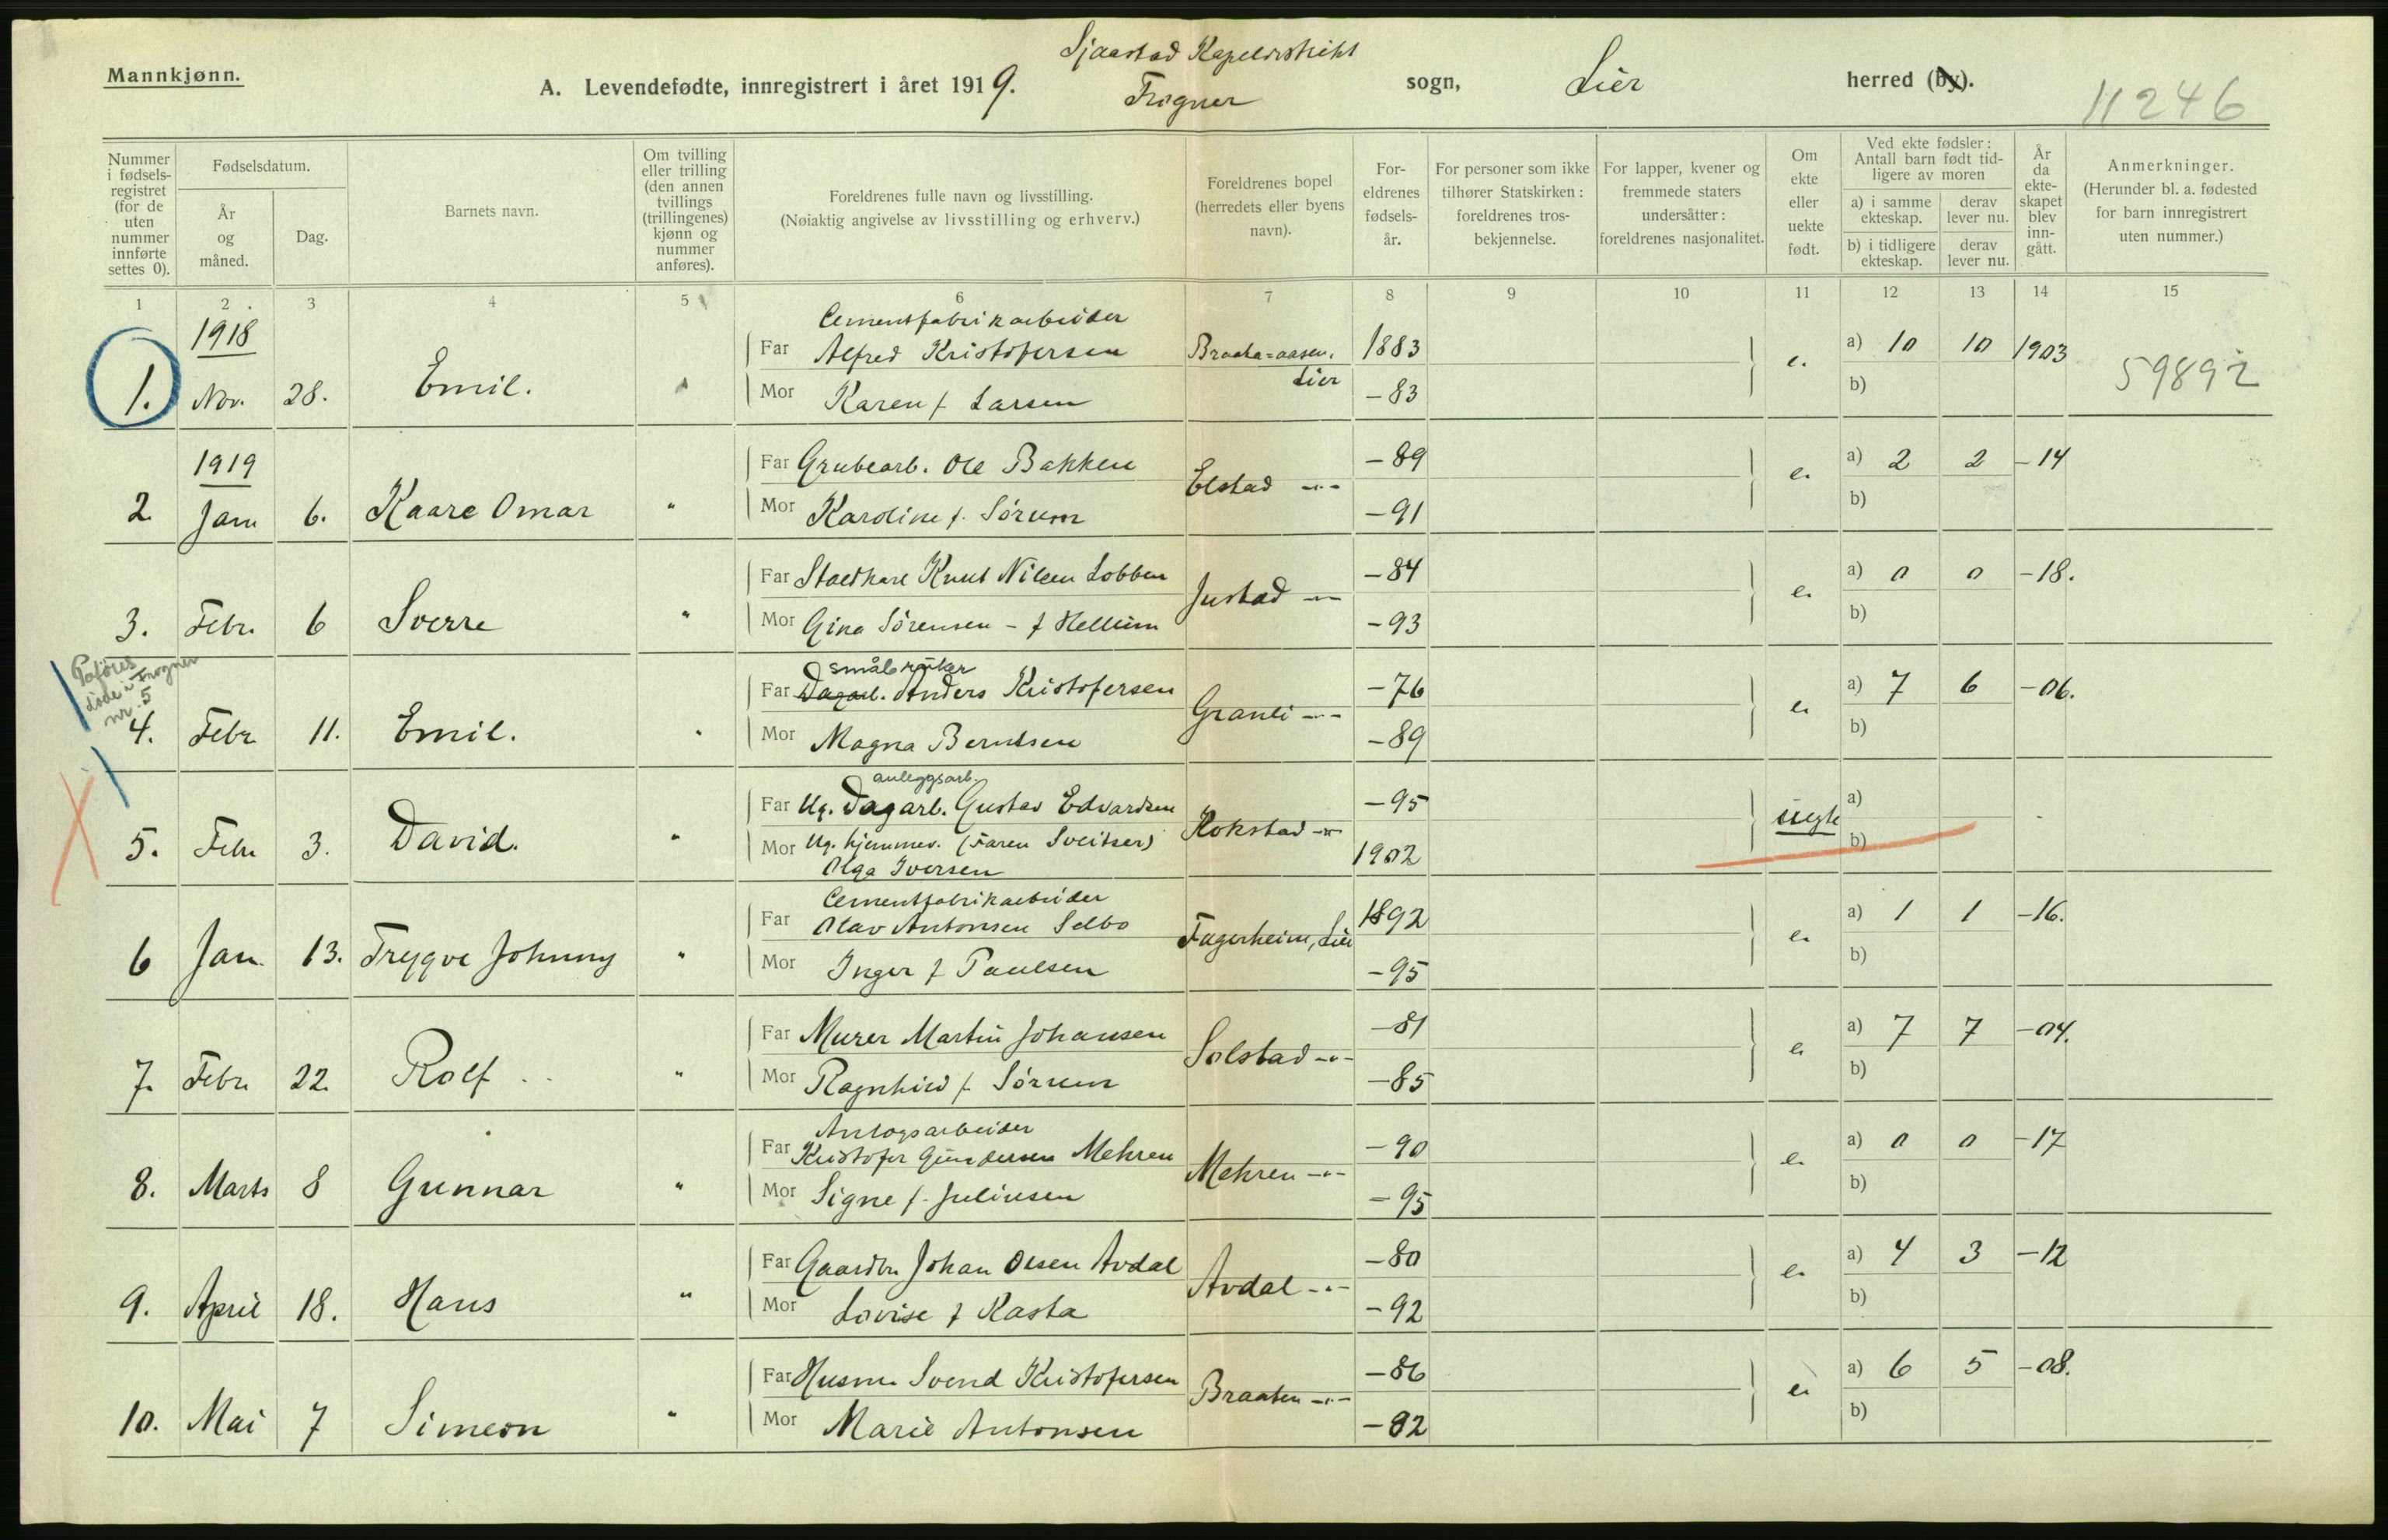 Mannkjønn.
A. Levendefødte, innregistrert i året 1919.
Sjaastad Kapeldistrikt
Frogner
sogn,
Lier
herred (by).
11246
Nummer i fødselsregistret (for de uten nummer innførte settes 0).
Fødselsdatum.
År og måned.
Dag.
Barnets navn.
Om tvilling eller trilling (den annen tvillings (trillingenes) kjønn og nummer anføres).
Foreldrenes fulle navn og livsstilling.
(Nøiaktig angivelse av livsstilling og erhverv.)
Foreldrenes bopel (herredets eller byens navn).
Foreldrenes fødselsår.
For personer som ikke tilhører Statskirken: foreldrenes trosbekjennelse.
For lapper, kvener og fremmede staters undersåtter: foreldrenes nasjonalitet.
Om ekte eller uekte født.
Ved ekte fødsler: Antall barn født tidligere av moren
a) i samme ekteskap. derav lever nu.
b) i tidligere ekteskap. derav lever nu.
År da ekteskapet blev inngått.
Anmerkninger.
(Herunder bl. a. fødested for barn innregistrert uten nummer.)
1 2 3 4 5 6 7 8 9 10 11 12 13 14 15
1918
Cementfabrikarbeider
Far Alfred Kristofersen Braata=aasen, Lier 1883 a) 10 10 1903
1. Nov. 28. Emil. e. 59892
Mor Karen f. Larsen -83 b)
1919
Far Grubearb. Ole Bakken -89 a) 2 2 -14
2. Jan 6. Kaare Omar " Elstad -"- e.
Mor Karoline f. Sørum -91 b)
Far Staldkarl Knut Nilsen Lobben -84 a) 0 0 -18.
3. Febr. 6 Sverre " Justad -"- e.
Mor Gina Sørensen - f Hellum -93 b)
Paføres døde i Frogner nr. 5
småbruker
Far Dagarb. Anders Kristofersen -76 a) 7 6 -06.
4. Febr 11. Emil. " Granli -"- e.
Mor Magna Berntsen -89 b)
anleggsarb.
Far Ug. Dagarb. Gustav Edvardsen -95 a)
5. Febr 3. David. " Kokstad -"- uegte
Mor Ug. hjemmev. (Faren Sveitser) 1902 b)
Olga Iversen
Cementfabrikarbeider
Far Olav Antonsen Selbo 1892 a) 1 1 -16.
6 Jan. 13. Trygve Johnny " Fagerheim, Lier e.
Mor Inger f Paulsen -95 b)
Far Murer Martin Johansen -81 a) 7 7 -04.
7. Febr 22. Rolf " Solstad -"- e
Mor Ragnhild f. Sørum -85 b)
Anlægsarbeider
Far Kristofer Gundersen Mehren -90 a) 0 0 -17
8. Marts 8 Gunnar " Mehren -"- e.
Mor Signe f. Juliusen -95 b)
Far Gaardbr Johan Olsen Avdal -80 a) 4 3 -12
9. April 18. Hans " Avdal -"- e.
Mor Lovise f Kasta -92 b)
Far Husm. Svend Kristofersen -86 a) 6 5 -08.
10. Mai 7 Simeon " Braaten -"- e
Mor Marie Antonsen -82 b)